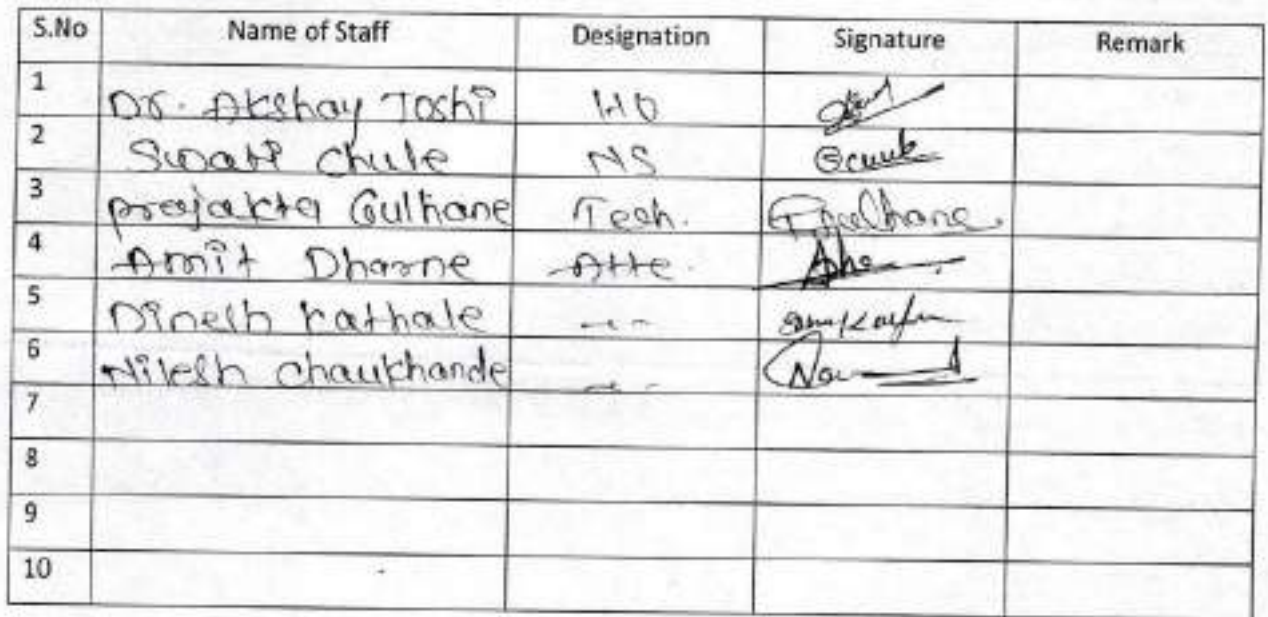 S.No Name of Staff Designation Signature Remark
1 Dr. Akshay Joshi HO
2 Swati Chule NS
3 Prajakta Gulhane Tech. Gulhane
4 Amit Dharne Atte.
5 Dinesh Kathale -〃-
6 Nilesh Chaukhande -〃-
7
8
9
10